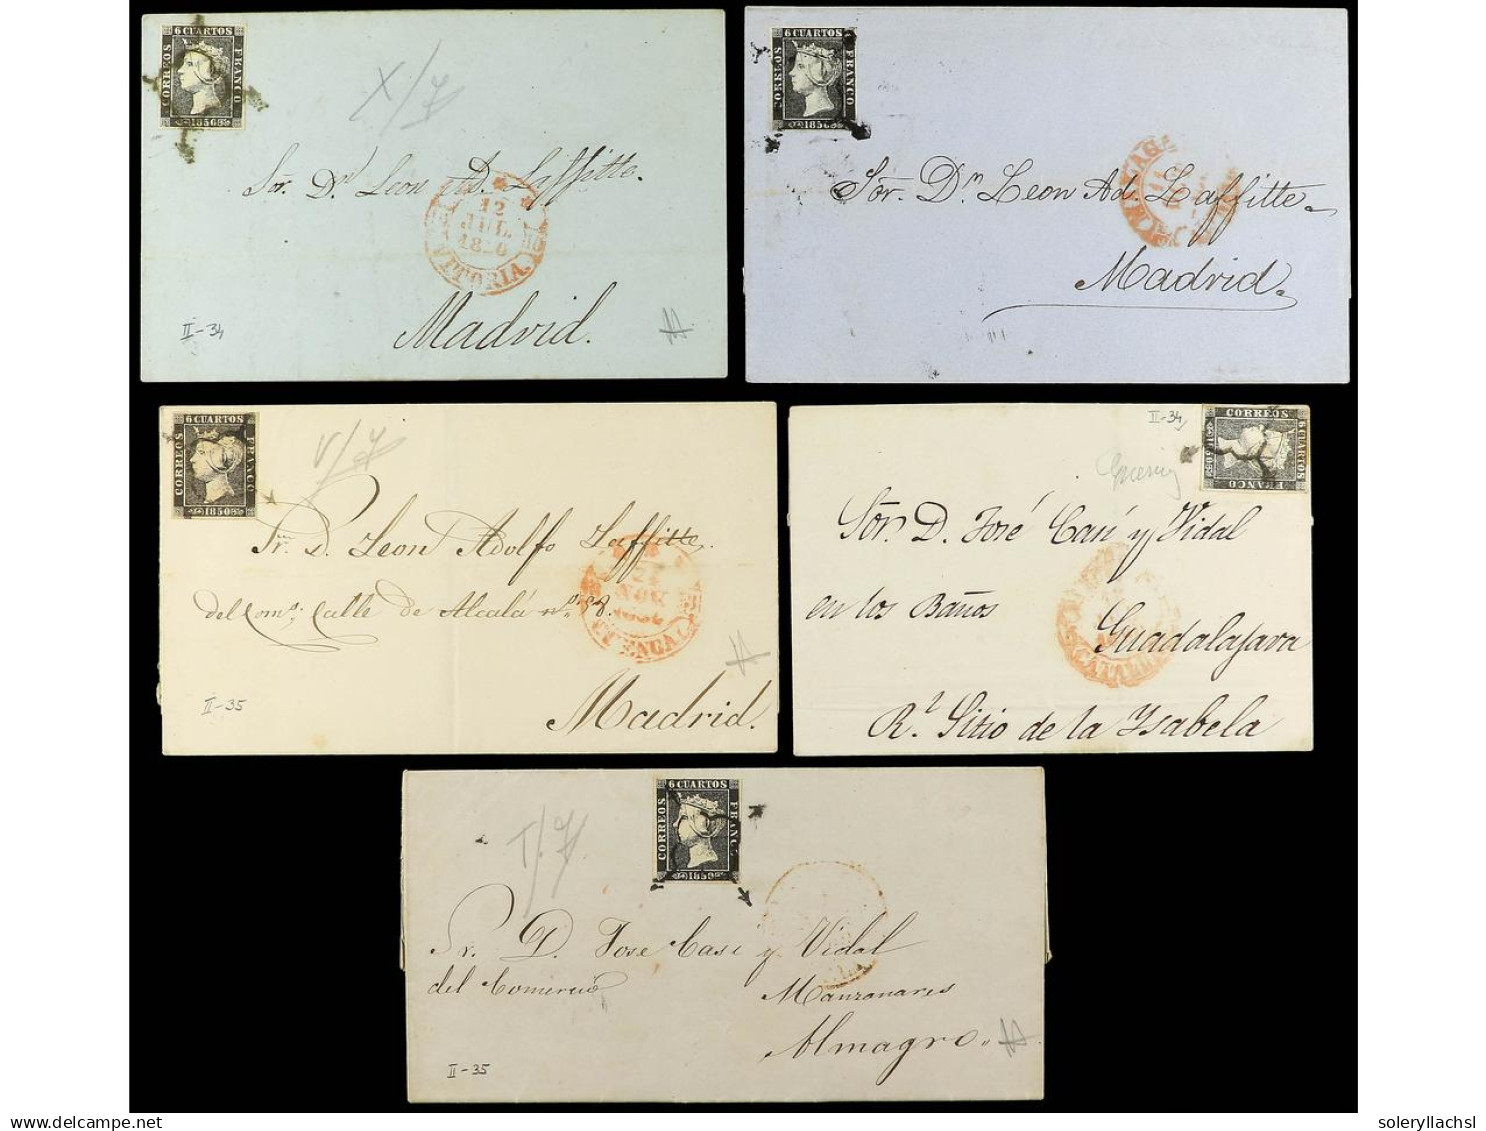 6 CUARTOS
CORREOS
FRANCO
1850
X/7
Sor. Dn Leon Ad. Laffitte.
12
JUL.
1850
VITORIA.
Madrid.
II-34
6 CUARTOS
CORREOS
FRANCO
1850
Sor. Dn Leon Ad. Laffitte
Madrid.
6 CUARTOS
CORREOS
FRANCO
1850
V/7
Sr. D. Leon Adolfo Laffitte.
del Como; Calle de Alcalá no 58.
NOV
Madrid.
II-35
II-34
CORREOS
6 CUARTOS
FRANCO
1850
Sor. D. José Casi y Vidal
en los Baños
Guadalajara
Rl Sitio de la Ysabela
6 CUARTOS
CORREOS
FRANCO
1850
T/7
Sr. D. Jose Casi y Vidal
del Comercio
Manzanares
Almagro.
II-35
soleryllachsl